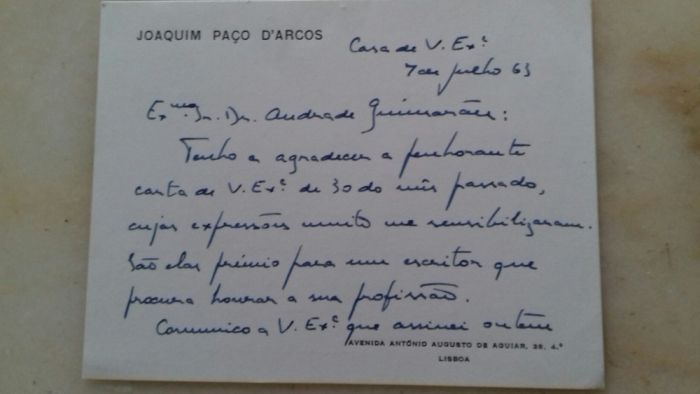 JOAQUIM PAÇO D'ARCOS
Casa de V. Exª
7 de Julho 63
Exmo. Sr. Dr. Andrade Guimarães:
Tenho a agradecer a penhorante
carta de V. Exª de 30 do mês passado,
cujas expressões muito me sensibilizaram.
São elas prémio para um escritor que
procura honrar a sua profissão.
Comunico a V. Exª que assinei ontem
AVENIDA ANTÓNIO AUGUSTO DE AGUIAR, 38, 4.º
LISBOA